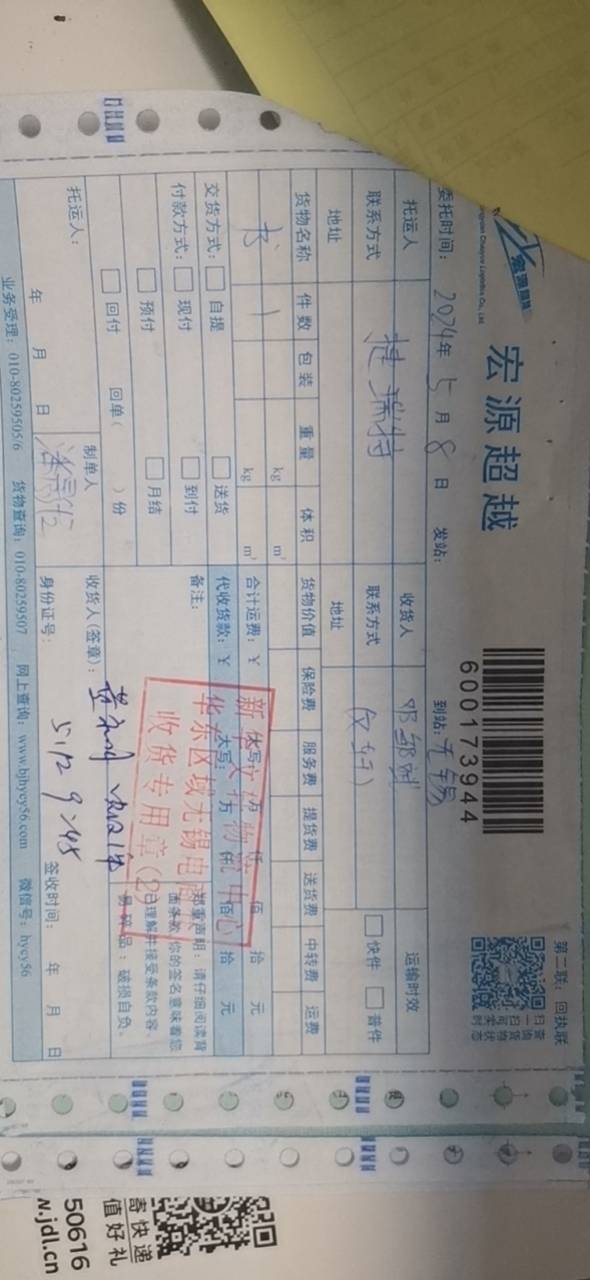 宏源超越
600173944
第二联：回执联
扫一扫
查询货物实时状态
委托时间：2024年5月8日 发站： 到站：无锡
托运人 收货人 运输时效
联系方式 捷瑞特 联系方式 快件 普件
地址 地址
货物名称 件数 包装 重量 体积 货物价值 保险费 服务费 提货费 送货费 中转费 运费
书 1 kg m³
kg m³ 合计运费：¥ 大写： 万 仟 佰 拾 元
交货方式： 自提 送货 代收货款：¥ 大写： 万 仟 佰 拾 元
付款方式： 现付 到付 备注： 郑重声明：请仔细阅读背
预付 月结 面条款，你的签名意味着您
回付 回单（ ）份 已理解并接受条款内容。
易碎品：破损自负。
华东区域无锡电
收货专用章(2)
托运人： 制单人 收货人(签章)：
年 月 日 身份证号： 签收时间： 年 月 日
业务受理：010-80259505/6 货物查询：010-80259507 网上查询：www.bjhycy56.com 微信号：hycy56
寄快递
值好礼
50616
w.jdl.cn